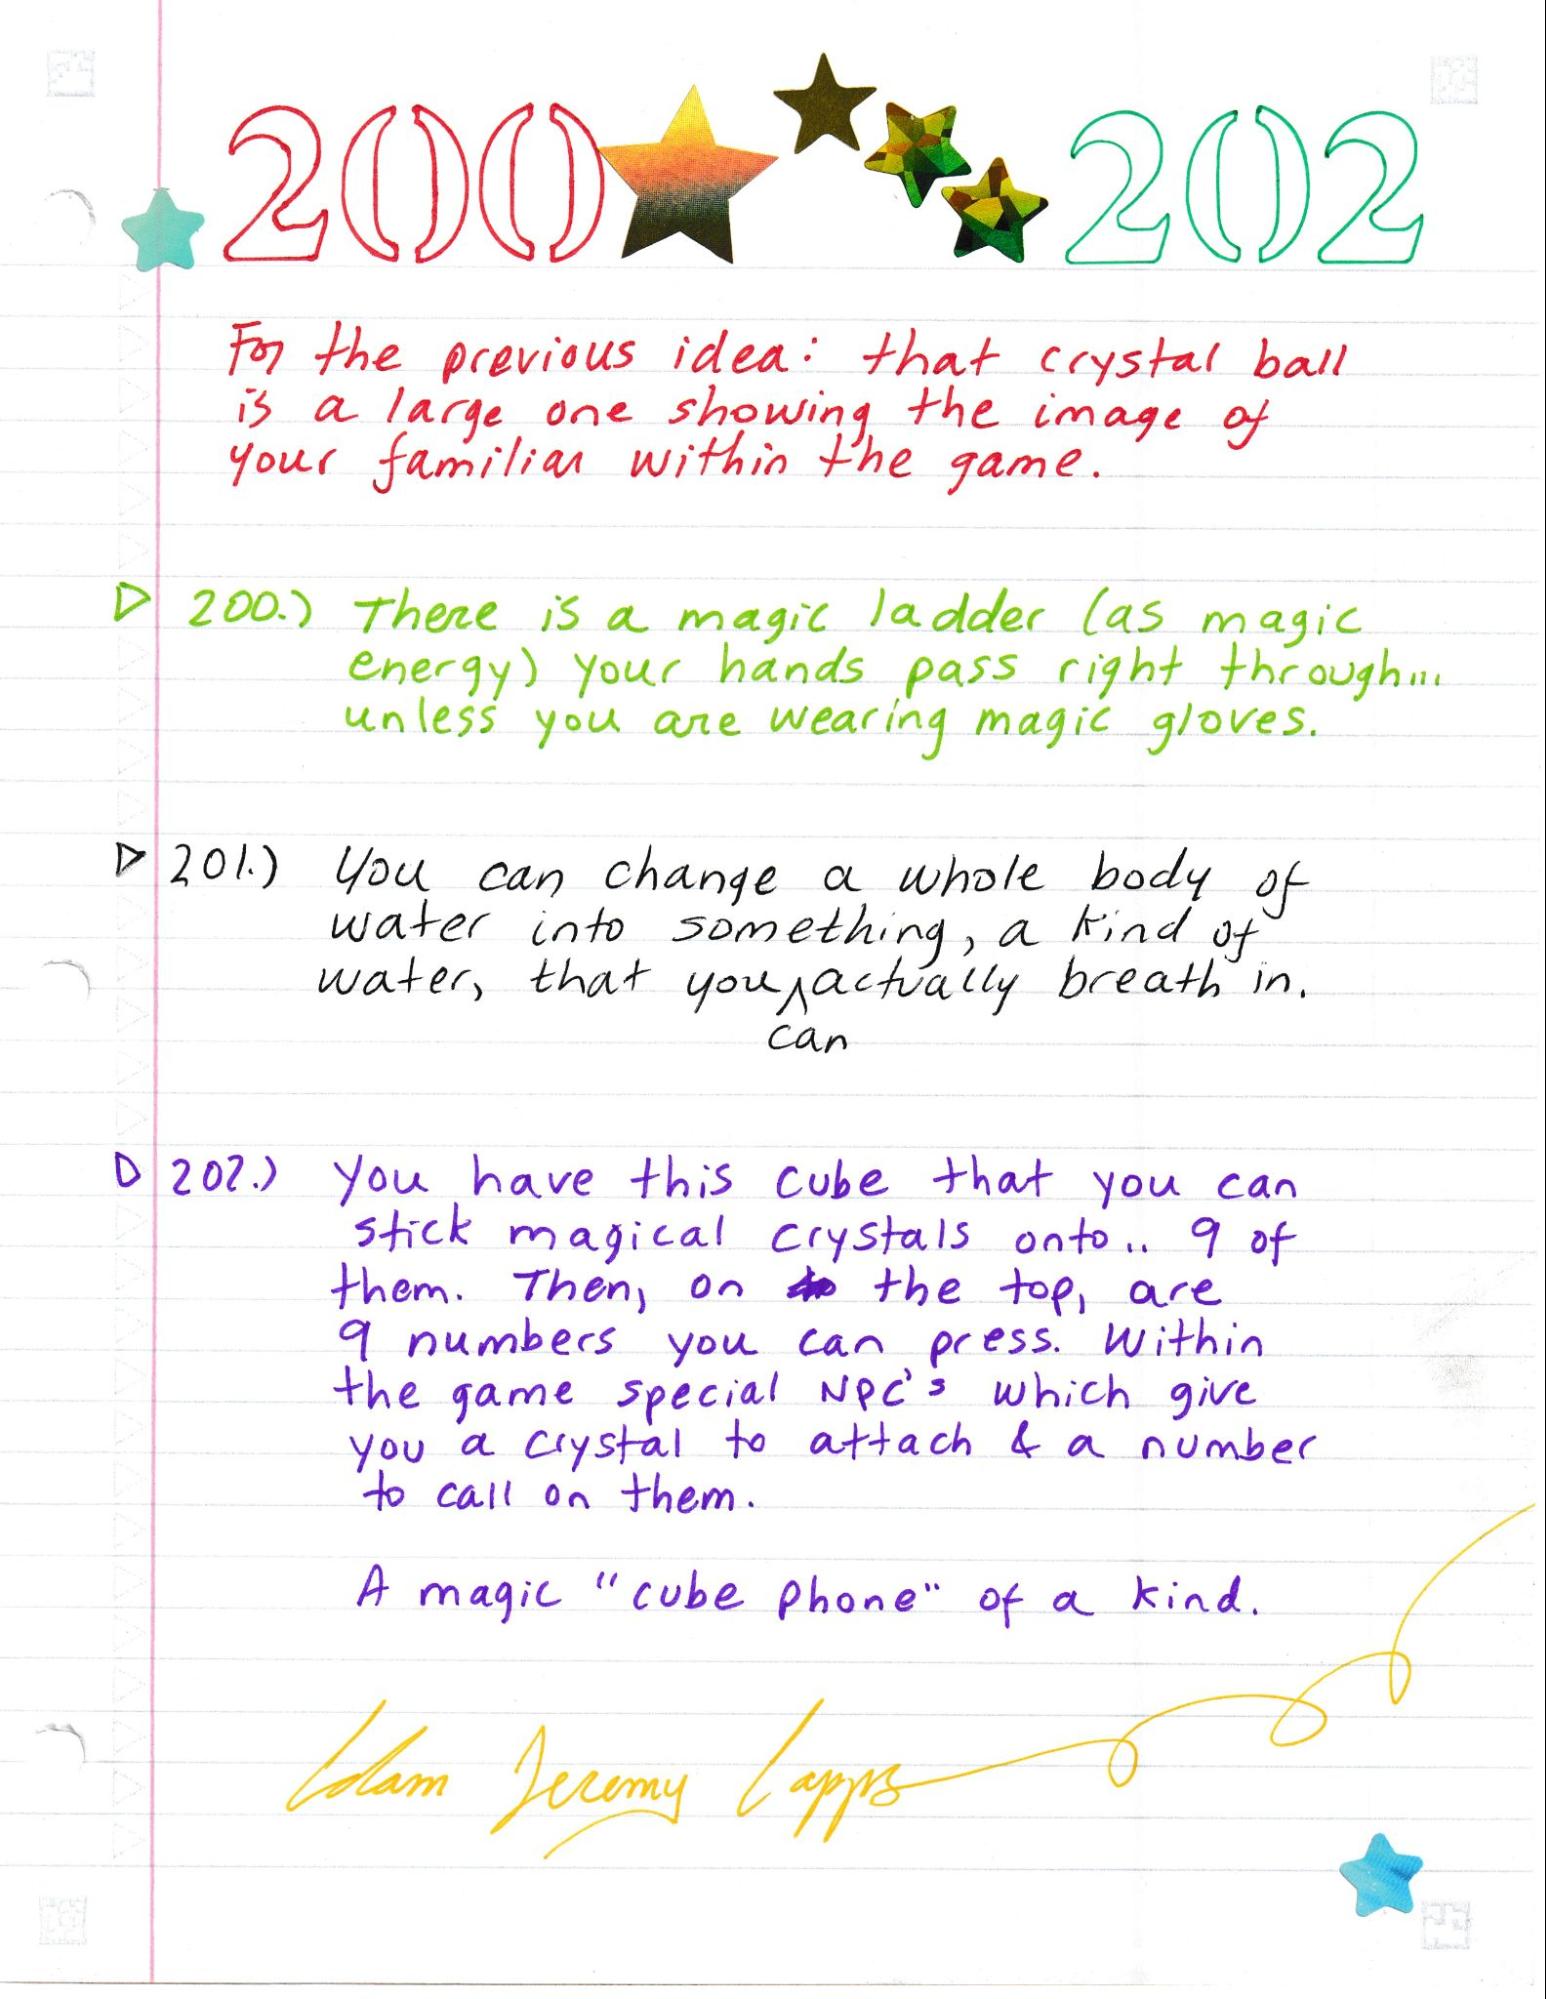 200 202
For the previous idea: that crystal ball
is a large one showing the image of
your familiar within the game.
200.) There is a magic ladder (as magic
energy) your hands pass right through...
unless you are wearing magic gloves.
201.) You can change a whole body of
water into something, a kind of
water, that you ^ actually breath in.
can
202.) You have this cube that you can
stick magical crystals onto.. 9 of
them. Then, on the top, are
9 numbers you can press. Within
the game special NPC's which give
you a crystal to attach & a number
to call on them.
A magic "cube phone" of a kind.
Adam Jeremy Capps